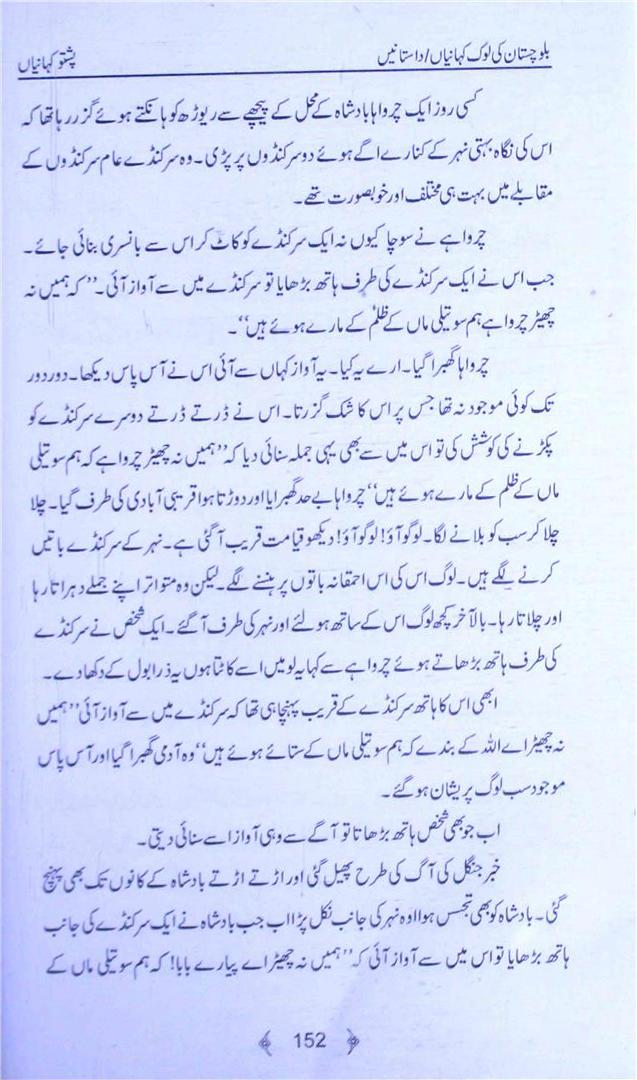 بلوچستان کی لوک کہانیاں/داستانیں
پشتو کہانیاں
کسی روز ایک چرواہا بادشاہ کے محل کے پیچھے سے ریوڑھ کو ہانکتے ہوئے گزر رہا تھا کہ
اس کی نگاہ بہتی نہر کے کنارے اگے ہوئے دو سرکنڈوں پر پڑی۔ وہ سرکنڈے عام سرکنڈوں کے
مقابلے میں بہت ہی مختلف اور خوبصورت تھے۔
چرواہے نے سوچا کیوں نہ ایک سرکنڈے کو کاٹ کر اس سے بانسری بنائی جائے۔
جب اس نے ایک سرکنڈے کی طرف ہاتھ بڑھایا تو سرکنڈے میں سے آواز آئی۔ ’’کہ ہمیں نہ
چھیڑ چرواہے ہم سوتیلی ماں کے ظلم کے مارے ہوئے ہیں‘‘۔
چرواہا گھبرا گیا۔ ارے یہ کیا۔ یہ آواز کہاں سے آئی اس نے آس پاس دیکھا۔ دور دور
تک کوئی موجود نہ تھا جس پر اس کا شک گزرتا۔ اس نے ڈرتے ڈرتے دوسرے سرکنڈے کو
پکڑنے کی کوشش کی تو اس میں سے بھی یہی جملہ سنائی دیا کہ ’’ہمیں نہ چھیڑ چرواہے کہ ہم سوتیلی
ماں کے ظلم کے مارے ہوئے ہیں‘‘ چرواہا بے حد گھبرایا اور دوڑتا ہوا قریبی آبادی کی طرف گیا۔ چلا
چلا کر سب کو بلانے لگا۔ لوگو آؤ! لوگو آؤ! دیکھو قیامت قریب آگئی ہے۔ نہر کے سرکنڈے باتیں
کرنے لگے ہیں۔ لوگ اس کی اس احمقانہ باتوں پر ہنسنے لگے۔ لیکن وہ متواتر اپنے جملے دہراتا رہا
اور چلاتا رہا۔ بالآخر کچھ لوگ اس کے ساتھ ہولئے اور نہر کی طرف آگئے۔ ایک شخص نے سرکنڈے
کی طرف ہاتھ بڑھاتے ہوئے چرواہے سے کہا یہ لو میں اسے کاٹتا ہوں یہ ذرا بول کے دکھا دے۔
ابھی اس کا ہاتھ سرکنڈے کے قریب پہنچا ہی تھا کہ سرکنڈے میں سے آواز آئی ’’ہمیں
نہ چھیڑ اے اللہ کے بندے کہ ہم سوتیلی ماں کے ستائے ہوئے ہیں‘‘ وہ آدمی گھبرا گیا اور آس پاس
موجود سب لوگ پریشان ہوگئے۔
اب جو بھی شخص ہاتھ بڑھاتا تو آگے سے وہی آواز اسے سنائی دیتی۔
خبر جنگل کی آگ کی طرح پھیل گئی اور اڑتے اڑتے بادشاہ کے کانوں تک بھی پہنچ
گئی۔ بادشاہ کو بھی تجسس ہوا اوہ نہر کی جانب نکل پڑا اب جب بادشاہ نے ایک سرکنڈے کی جانب
ہاتھ بڑھایا تو اس میں سے آواز آئی کہ ’’ہمیں نہ چھیڑ اے پیارے بابا! کہ ہم سوتیلی ماں کے
152